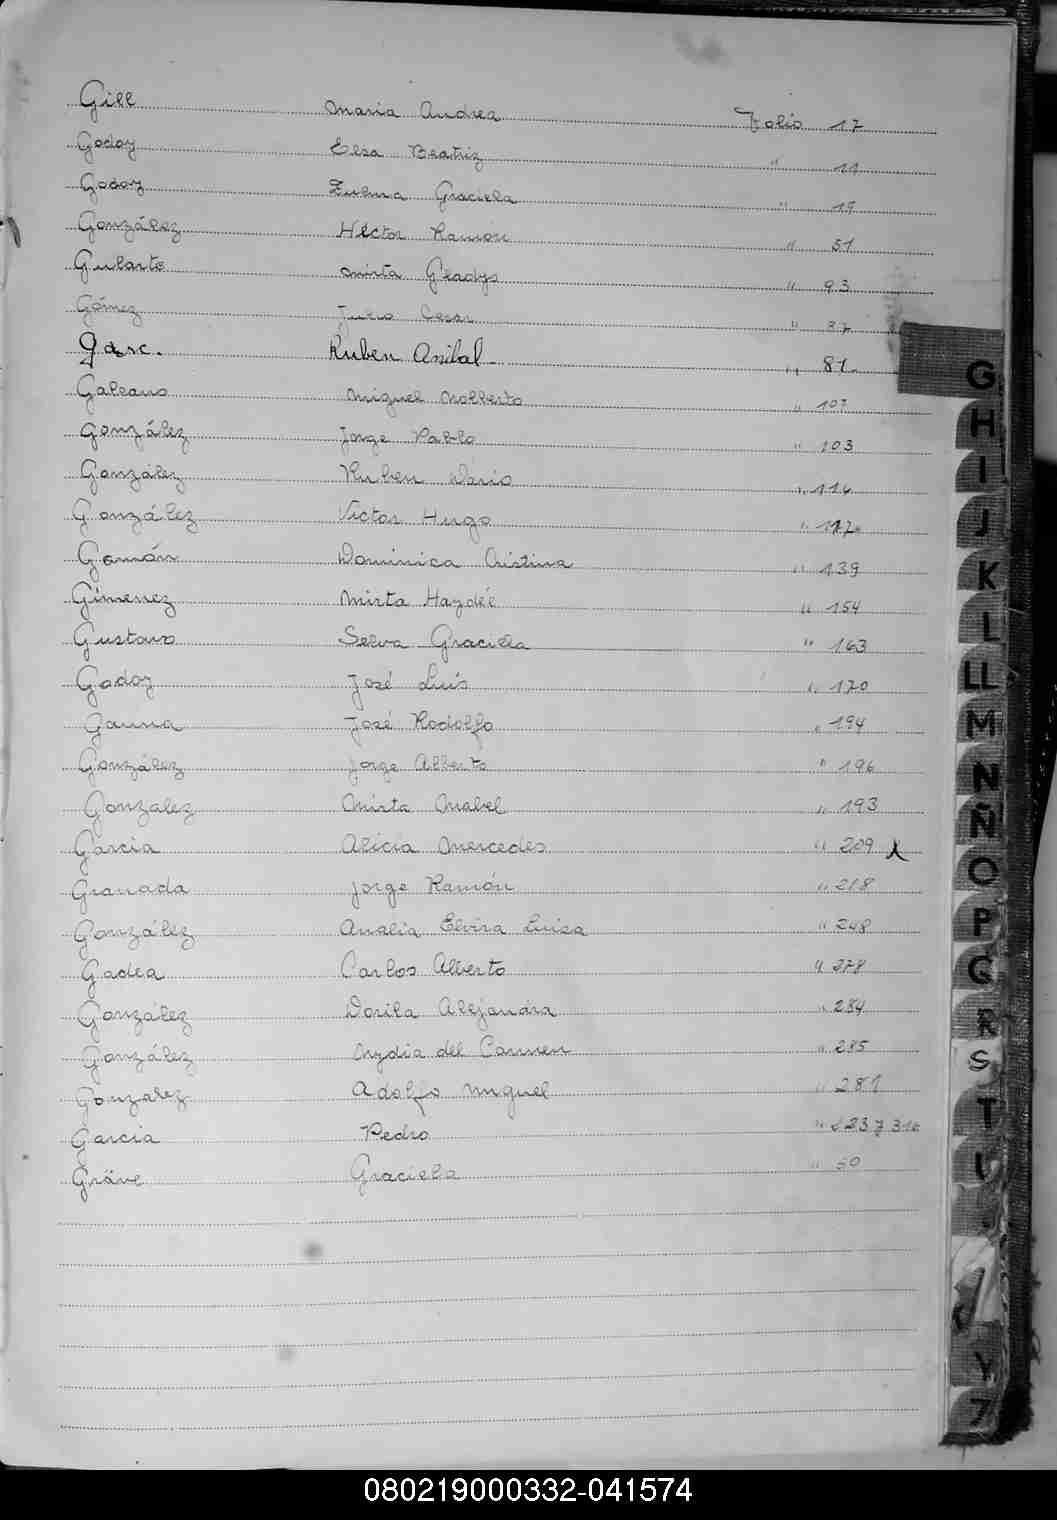 Gill Maria Andrea Folio 17
Godoy Elsa Beatriz " 11
Godoy Zulma Graciela " 19
González Héctor Ramón " 51
Gularte Mirta Gladys " 93
Gómez Julio Cesar " 37
Garc. Ruben Anibal " 81
Galeano Miguel Norberto " 107
González Jorge Pablo " 103
González Ruben Dario " 116
González Victor Hugo " 117
Gamón Dominica Cristina " 139
Gimenez Mirta Haydée " 154
Gustavo Selva Graciela " 163
Godoy José Luis " 170
Gauna José Rodolfo " 194
González Jorge Alberto " 196
Gonzalez Mirta Mabel " 193
Garcia Alicia Mercedes " 209 x
Granada Jorge Ramón " 218
González Analia Elvira Luisa " 248
Gadea Carlos Alberto " 278
González Dorila Alejandra " 284
González Nydia del Carmen " 285
Gonzalez Adolfo Miguel " 281
Garcia Pedro " 223 y 316
Gräve Graciela " 50
G
H
I
J
K
L
LL
M
N
Ñ
O
P
G
R
S
T
Y
Z
080219000332-041574